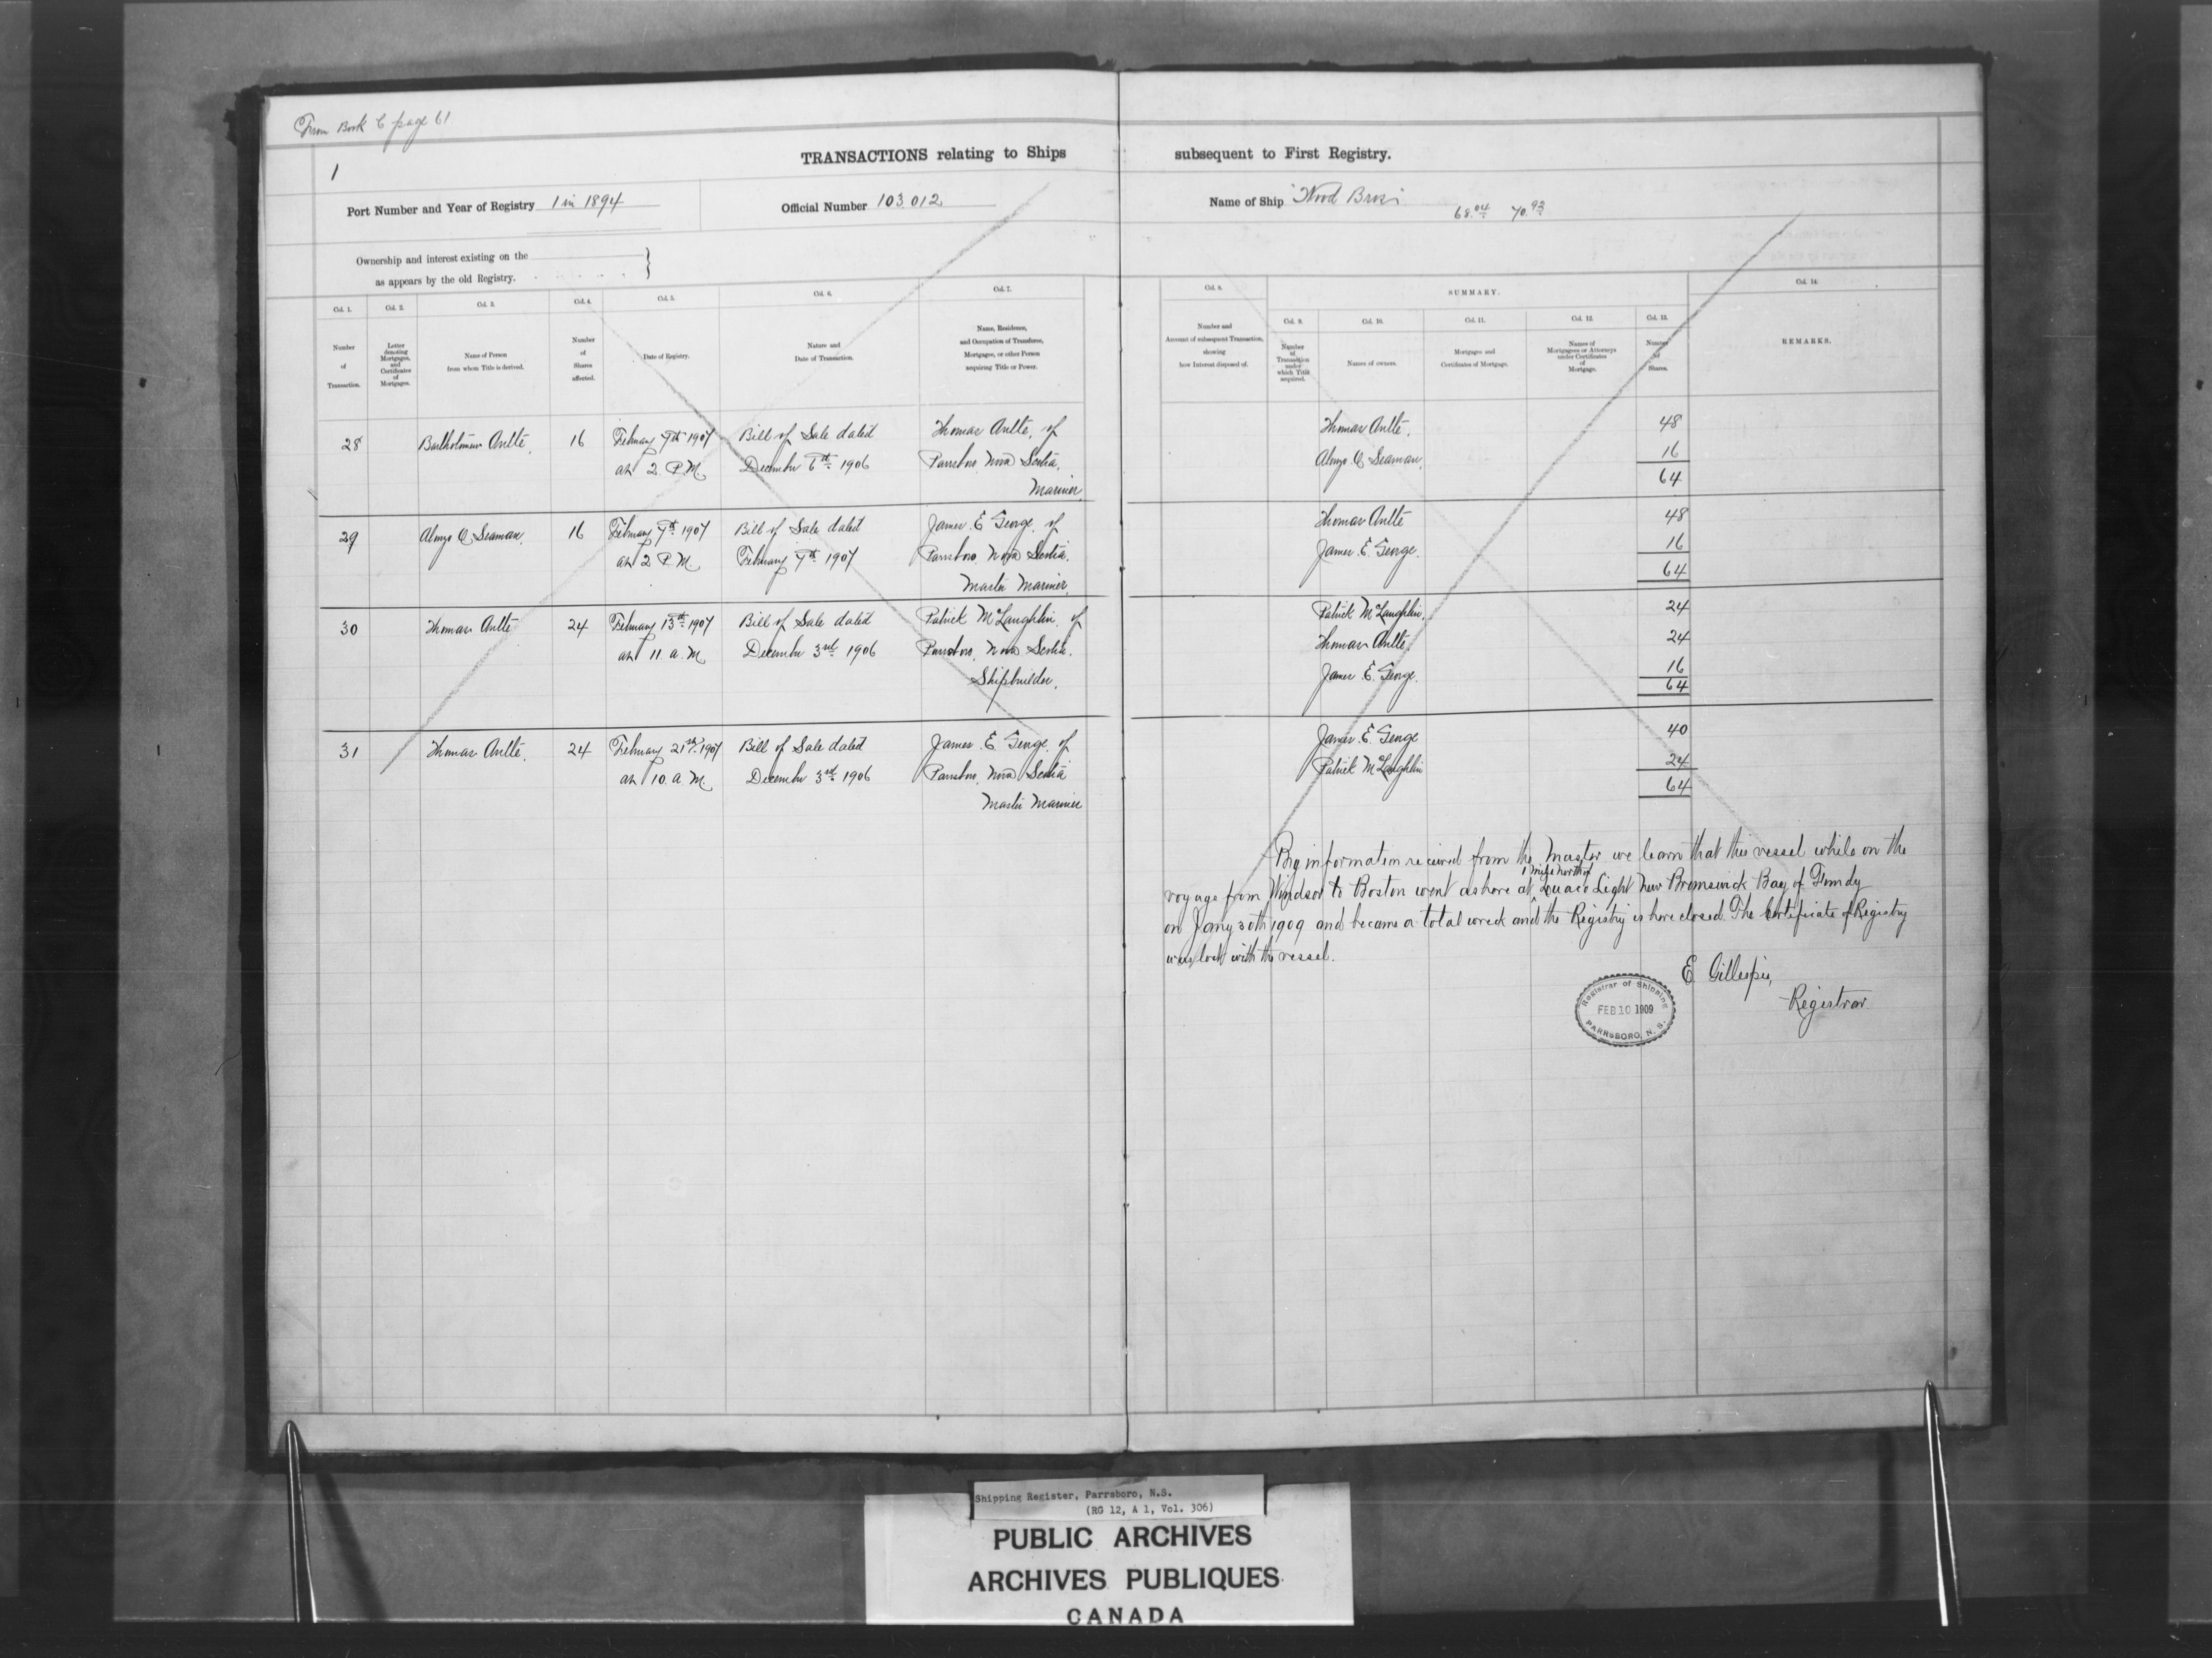 From Book C page 61
1
TRANSACTIONS relating to Ships subsequent to First Registry.
Port Number and Year of Registry 1 in 1894 Official Number 103.012 Name of Ship "Wood Bros" 68.04 70.93
Ownership and interest existing on the
as appears by the old Registry.
Col. 1. Col. 2. Col. 3. Col. 4. Col. 5. Col. 6. Col. 7. Col. 8. SUMMARY. Col. 14.
Col. 9. Col. 10. Col. 11. Col. 12. Col. 13.
Number of Transaction.
Letter denoting Mortgages, and Certificates of Mortgages.
Name of Person from whom Title is derived.
Number of Shares affected.
Date of Registry.
Nature and Date of Transaction.
Name, Residence, and Occupation of Transferee, Mortgagee, or other Person acquiring Title or Power.
Number and Account of subsequent Transaction, showing how Interest disposed of.
Number of Transaction under which Title acquired.
Names of owners.
Mortgages and Certificates of Mortgage.
Names of Mortgagees or Attorneys under Certificates of Mortgage.
Number of Shares.
REMARKS.
28 Bartholomew Antle. 16 February 7th 1907 Bill of Sale dated Thomas Antle, of Thomas Antle. 48
at 2 P.M. December 6th 1906 Parrsboro, Nova Scotia, Alonzo C Seaman. 16
Mariner. 64
29 Alonzo C Seaman. 16 February 7th 1907 Bill of Sale dated James E George, of Thomas Antle 48
at 2 P.M. February 7th 1907 Parrsboro, Nova Scotia. James E. George. 16
Master Mariner. 64
30 Thomas Antle 24 February 13th 1907 Bill of Sale dated Patrick McLaughlin, of Patrick McLaughlin. 24
at 11 a.m. December 3rd 1906 Parrsboro, Nova Scotia. Thomas Antle. 24
Shipbuilder. James E. George. 16
64
31 Thomas Antle. 24 February 21st 1907 Bill of Sale dated James E. George, of James E. George 40
at 10 a.m. December 3rd 1906 Parrsboro, Nova Scotia Patrick McLaughlin 24
Master Mariner 64
By information received from the Master we learn that this vessel while on the
voyage from Windsor to Boston went ashore at 1 mile north of Quaco Light New Brunswick Bay of Fundy
on Jany 30th 1909 and became a total wreck and the Registry is here closed. The Certificate of Registry
was lost with the vessel.
E Gillespie,
Registrar
Registrar of Shipping
FEB 10 1909
PARRSBORO, N. S.
Shipping Register, Parrsboro, N.S.
(RG 12, A 1, Vol. 306)
PUBLIC ARCHIVES
ARCHIVES PUBLIQUES
CANADA